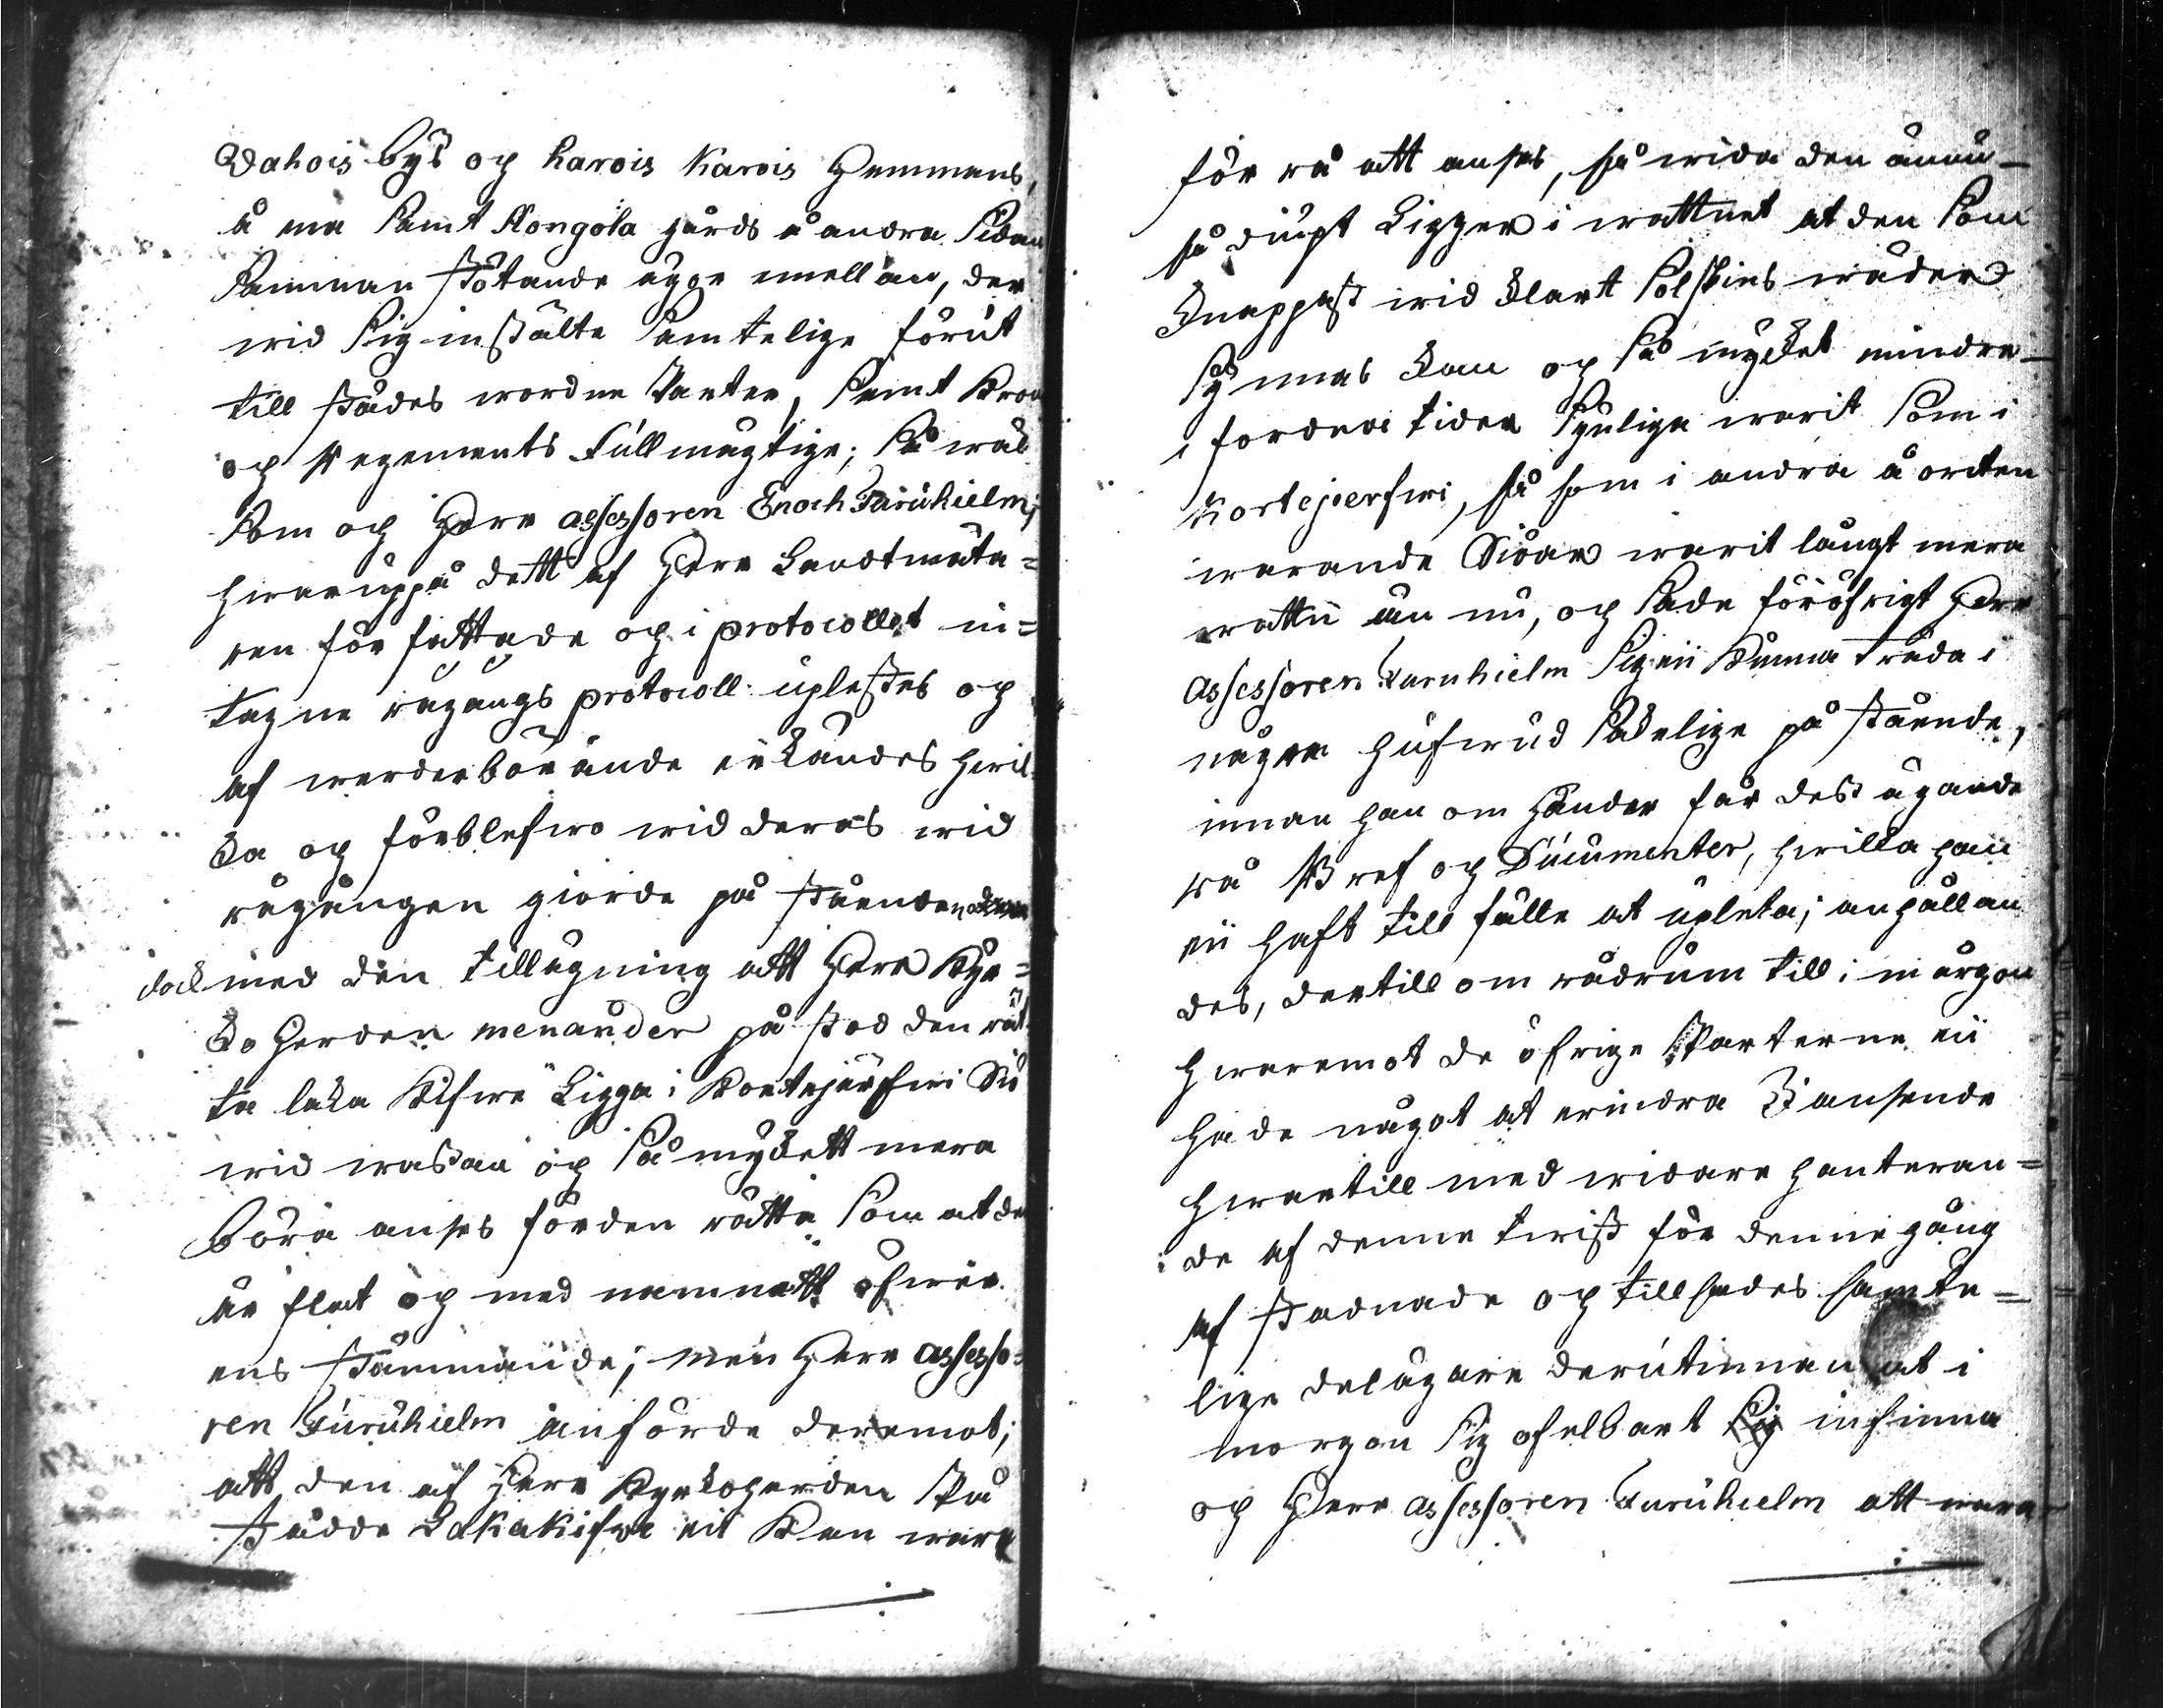 Wahois bys och Harois Karois Hemmens,
å ena samt Kongola gårds å andra sidan
sammanstötande ägor emellan, der
wid sig instälte samtelige förut
till städes wordne Parter, samt Kron
och Regements fullmägtige; så wäl
som och Herr assessoren Enoch Furuhielm;
hwaruppå dett af Herr Landtmäta=
ren författade och i protocollet in=
tagne rågångs protocoll uplästes och
af wederbörande erkändes hwil
ka och förblefwo wid deras wid
rågången giorde på ståenden
dock med den tillägning att Herr Kyr=
ko Herden Menander påstod den rät
ta laka Kifwe ligga i Kortejärfwi Siö
wid wassan och så mydett mera
böra anses för den rätta som at den
är flat och med namnett öfwer
ens stämmande; men Herr assesso=
ren Furuhielm anförde deremot;
att den af Herr Kyrkoherden På
stådde Lakakifwe eit kan wara
för rå att anses, så wida den ännu
så diupt Ligger i wattnet at den som
Knappast wid klart Solskins wäder
synas kan och så mycket mindre
i fordne tider synlige warit som i
Kortejerfwi, så som i andra å orten
warande Siöar warit långt mera
wattn än nu, och sade föröfrigt Herr
assessoren Furuhielm sig eij kunna träda i
någre hufwud sakelige på stående,
innan han om händer får dess ägande
rå Bref och Documenter, hwilka han
eij haft tillfälle at upleta; anhållan
des, dertill om rådrum till i morgon
hwaremot de öfrige Parterne eij
hade något at erindra I anseende
hwartill med widare hanteran=
de af denne twist för denne gång
af stadnade och tillsades samte=
lige delägare derutinnan at i
morgon sig ofelbart sig infinna
och Herr assessoren Furuhielm att wara